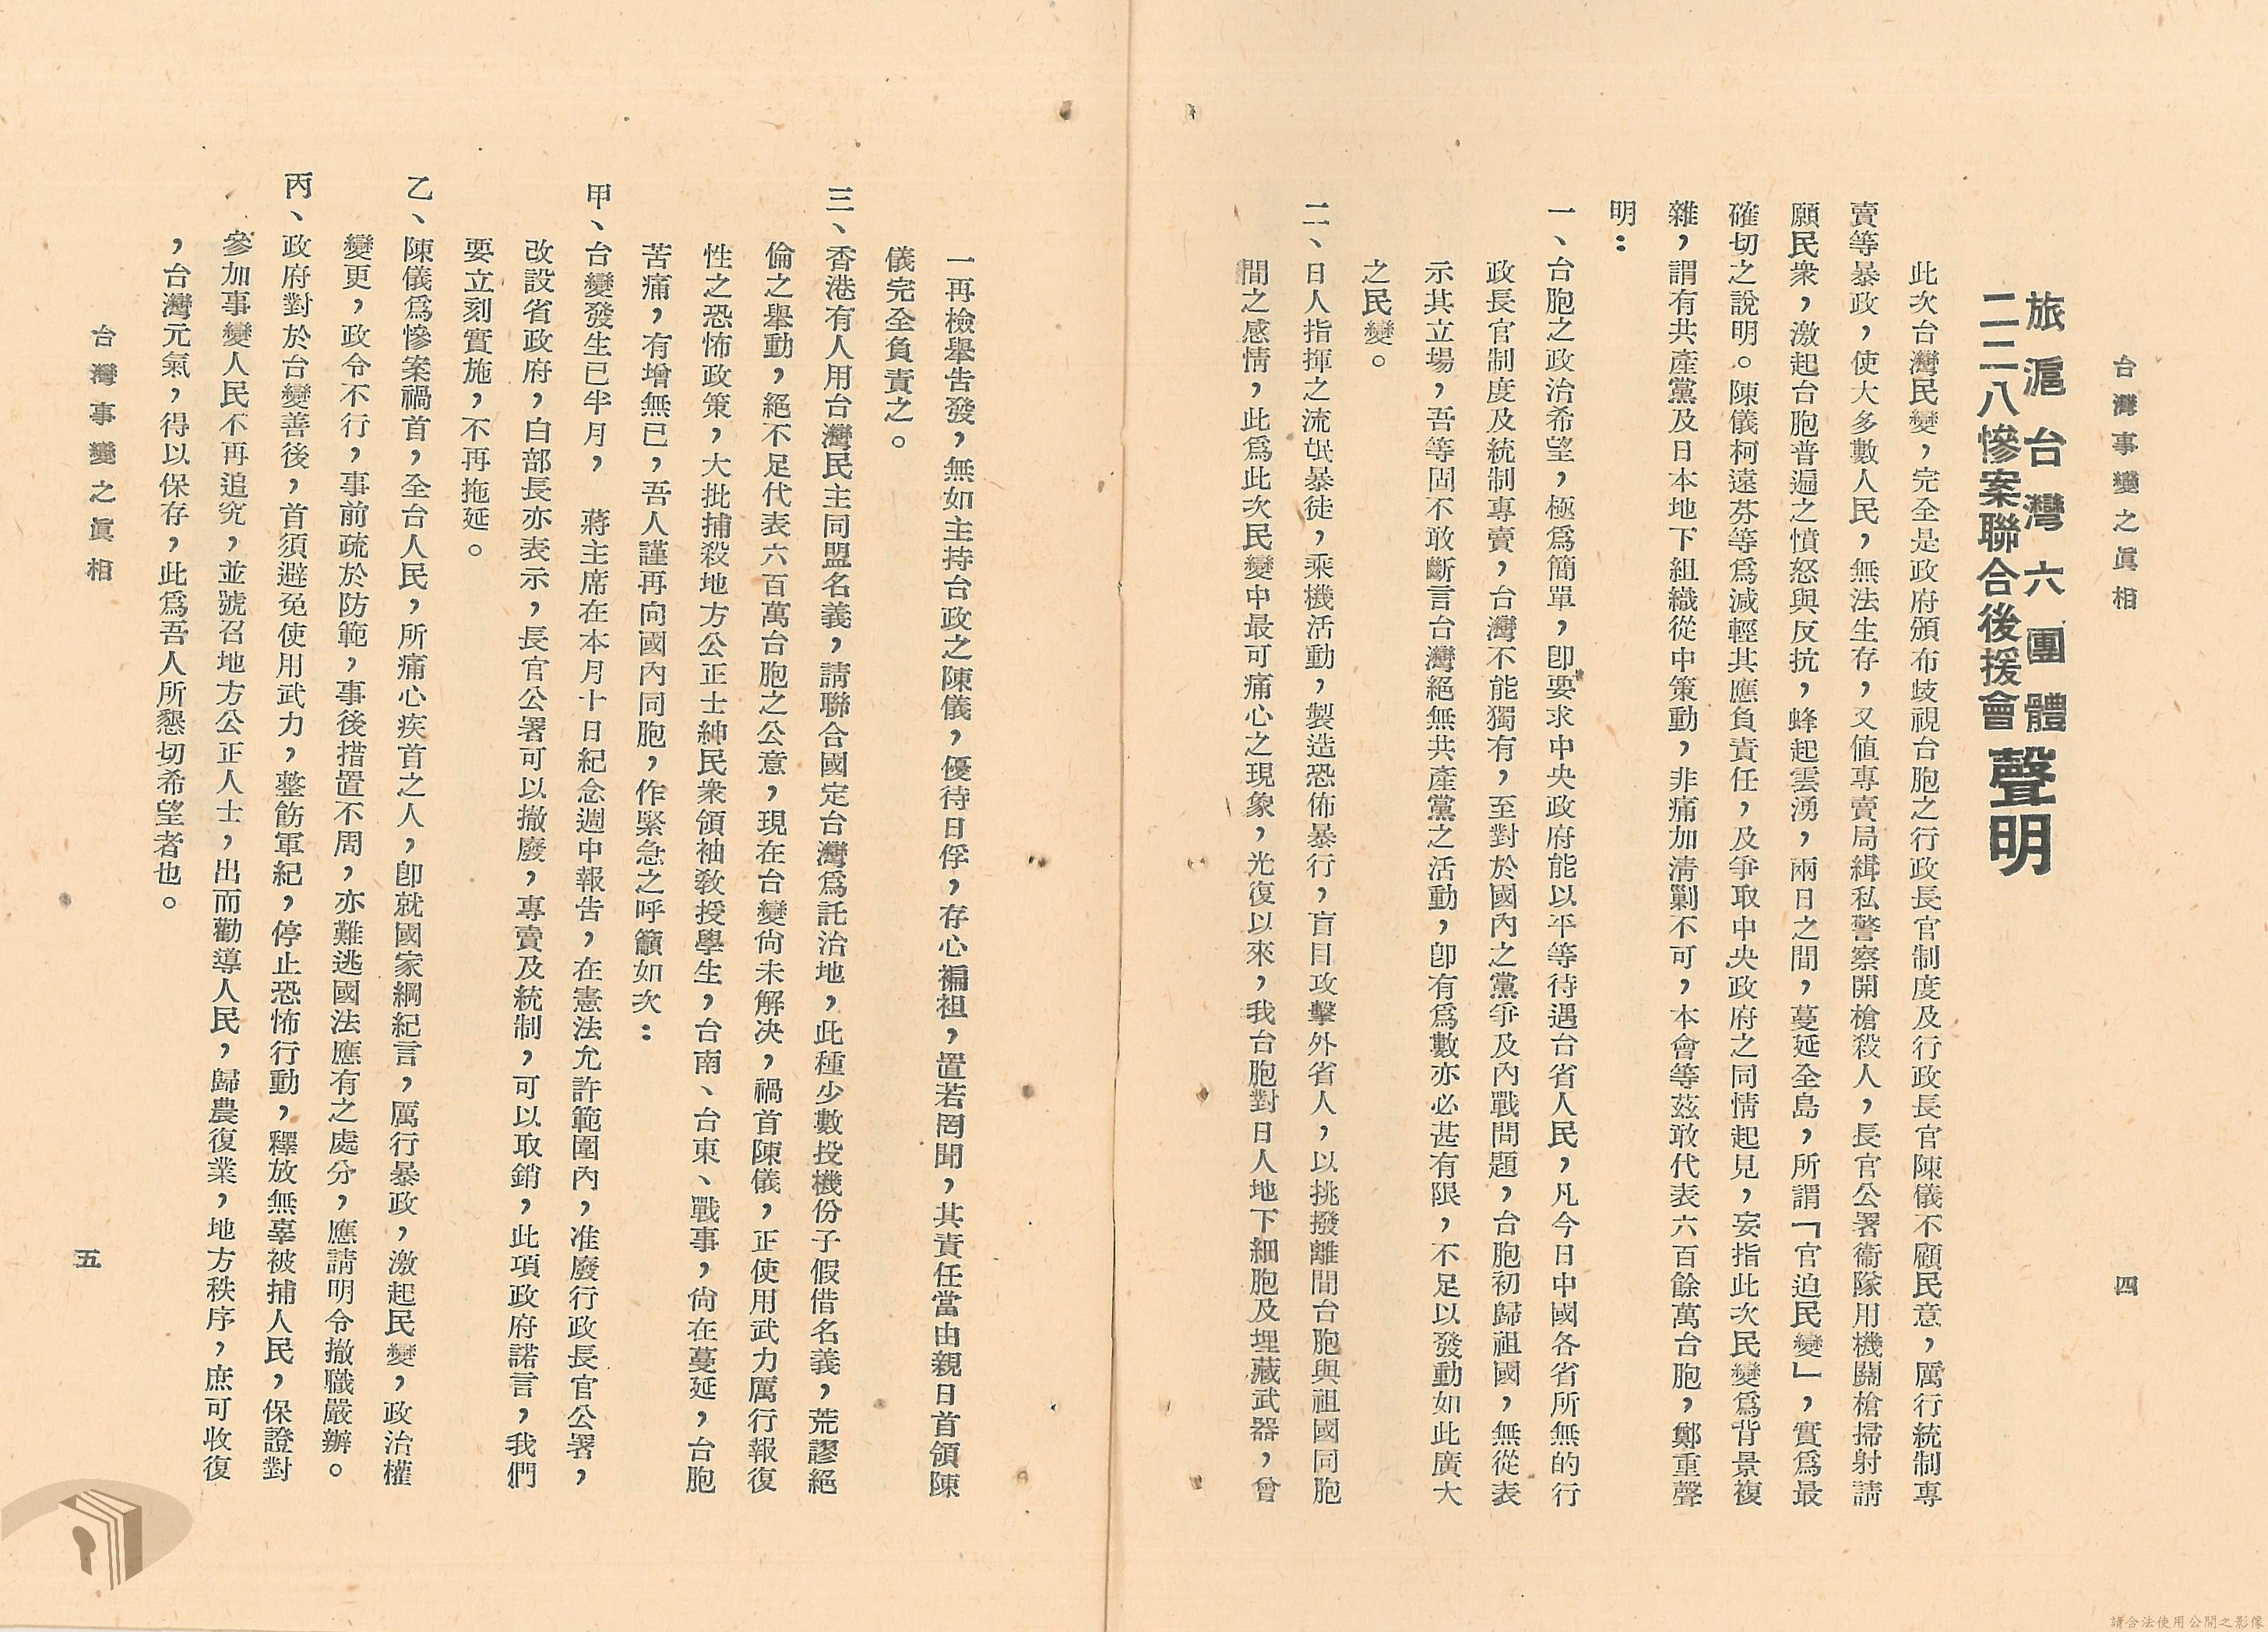 台灣事變之眞相
四
旅滬台灣六團體
二二八慘案聯合後援會
聲明
此次台灣民變，完全是政府頒布歧視台胞之行政長官制度及行政長官陳儀不顧民意，厲行統制專
賣等暴政，使大多數人民，無法生存，又值專賣局緝私警察開槍殺人，長官公署衞隊用機關槍掃射請
願民衆，激起台胞普遍之憤怒與反抗，蜂起雲湧，兩日之間，蔓延全島，所謂「官迫民變」，實爲最
確切之說明。陳儀柯遠芬等爲減輕其應負責任，及爭取中央政府之同情起見，妄指此次民變爲背景複
雜，謂有共產黨及日本地下組織從中策動，非痛加淸剿不可，本會等茲敢代表六百餘萬台胞，鄭重聲
明：
一、台胞之政治希望，極爲簡單，卽要求中央政府能以平等待遇台省人民，凡今日中國各省所無的行
政長官制度及統制專賣，台灣不能獨有，至對於國內之黨爭及內戰問題，台胞初歸祖國，無從表
示其立場，吾等固不敢斷言台灣絕無共產黨之活動，卽有爲數亦必甚有限，不足以發動如此廣大
之民變。
二、日人指揮之流氓暴徒，乘機活動，製造恐佈暴行，盲目攻擊外省人，以挑撥離間台胞與祖國同胞
間之感情，此爲此次民變中最可痛心之現象，光復以來，我台胞對日人地下細胞及埋藏武器，曾
一再檢舉告發，無如主持台政之陳儀，優待日俘，存心褊袒，置若罔聞，其責任當由親日首領陳
儀完全負責之。
三、香港有人用台灣民主同盟名義，請聯合國定台灣爲託治地，此種少數投機份子假借名義，荒謬絕
倫之舉動，絕不足代表六百萬台胞之公意，現在台變尙未解決，禍首陳儀，正使用武力厲行報復
性之恐怖政策，大批捕殺地方公正士紳民衆領袖敎授學生，台南、台東、戰事，尙在蔓延，台胞
苦痛，有增無已，吾人謹再向國內同胞，作緊急之呼籲如次：
甲、台變發生已半月，　蔣主席在本月十日紀念週中報告，在憲法允許範圍內，准廢行政長官公署，
改設省政府，白部長亦表示，長官公署可以撤廢，專賣及統制，可以取銷，此項政府諾言，我們
要立刻實施，不再拖延。
乙、陳儀爲慘案禍首，全台人民，所痛心疾首之人，卽就國家綱紀言，厲行暴政，激起民變，政治權
變更，政令不行，事前疏於防範，事後措置不周，亦難逃國法應有之處分，應請明令撤職嚴辦。
丙、政府對於台變善後，首須避免使用武力，整飭軍紀，停止恐怖行動，釋放無辜被捕人民，保證對
參加事變人民不再追究，並號召地方公正人士，出而勸導人民，歸農復業，地方秩序，庶可收復
，台灣元氣，得以保存，此爲吾人所懇切希望者也。
台灣事變之眞相
五
請合法使用公開之影像